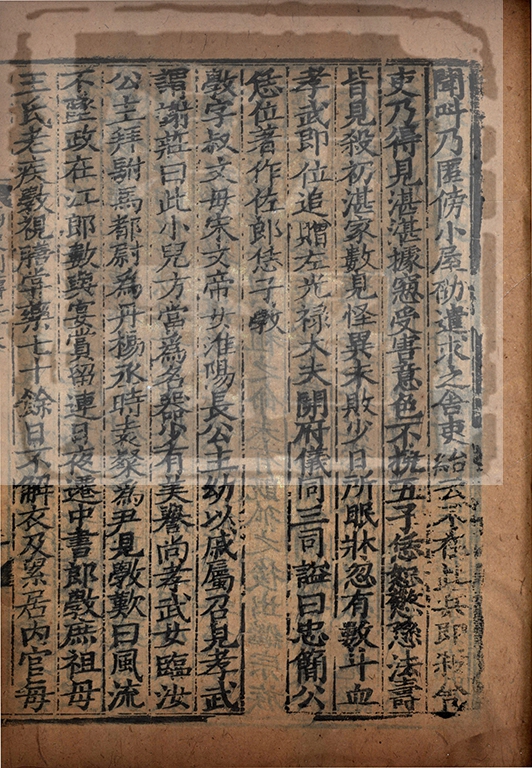 聞叫乃匿傍小屋劭遣求之舍吏紿云不在此兵即殺舍
吏乃得見湛湛據𥦗受害意色不撓五子恁恕憖愻法壽
皆見殺初湛家數見怪異未敗少日所眠牀忽有數斗血
孝武即位追贈左光祿大夫開府儀同三司謚曰忠簡公
恁位著作佐郎恁子斆
斆字叔文母宋文帝女淮陽長公主幼以戚屬召見孝武
謂謝莊曰此小兒方當為名器少有美譽尚孝武女臨汝
公主拜駙馬都尉為丹楊丞時袁粲為尹見斆歎曰風流
不墜政在江郎數與宴賞留連日夜遷中書郎斆庶祖母
王氏老疾斆視膳嘗藥七十餘日不解衣及累居內官每